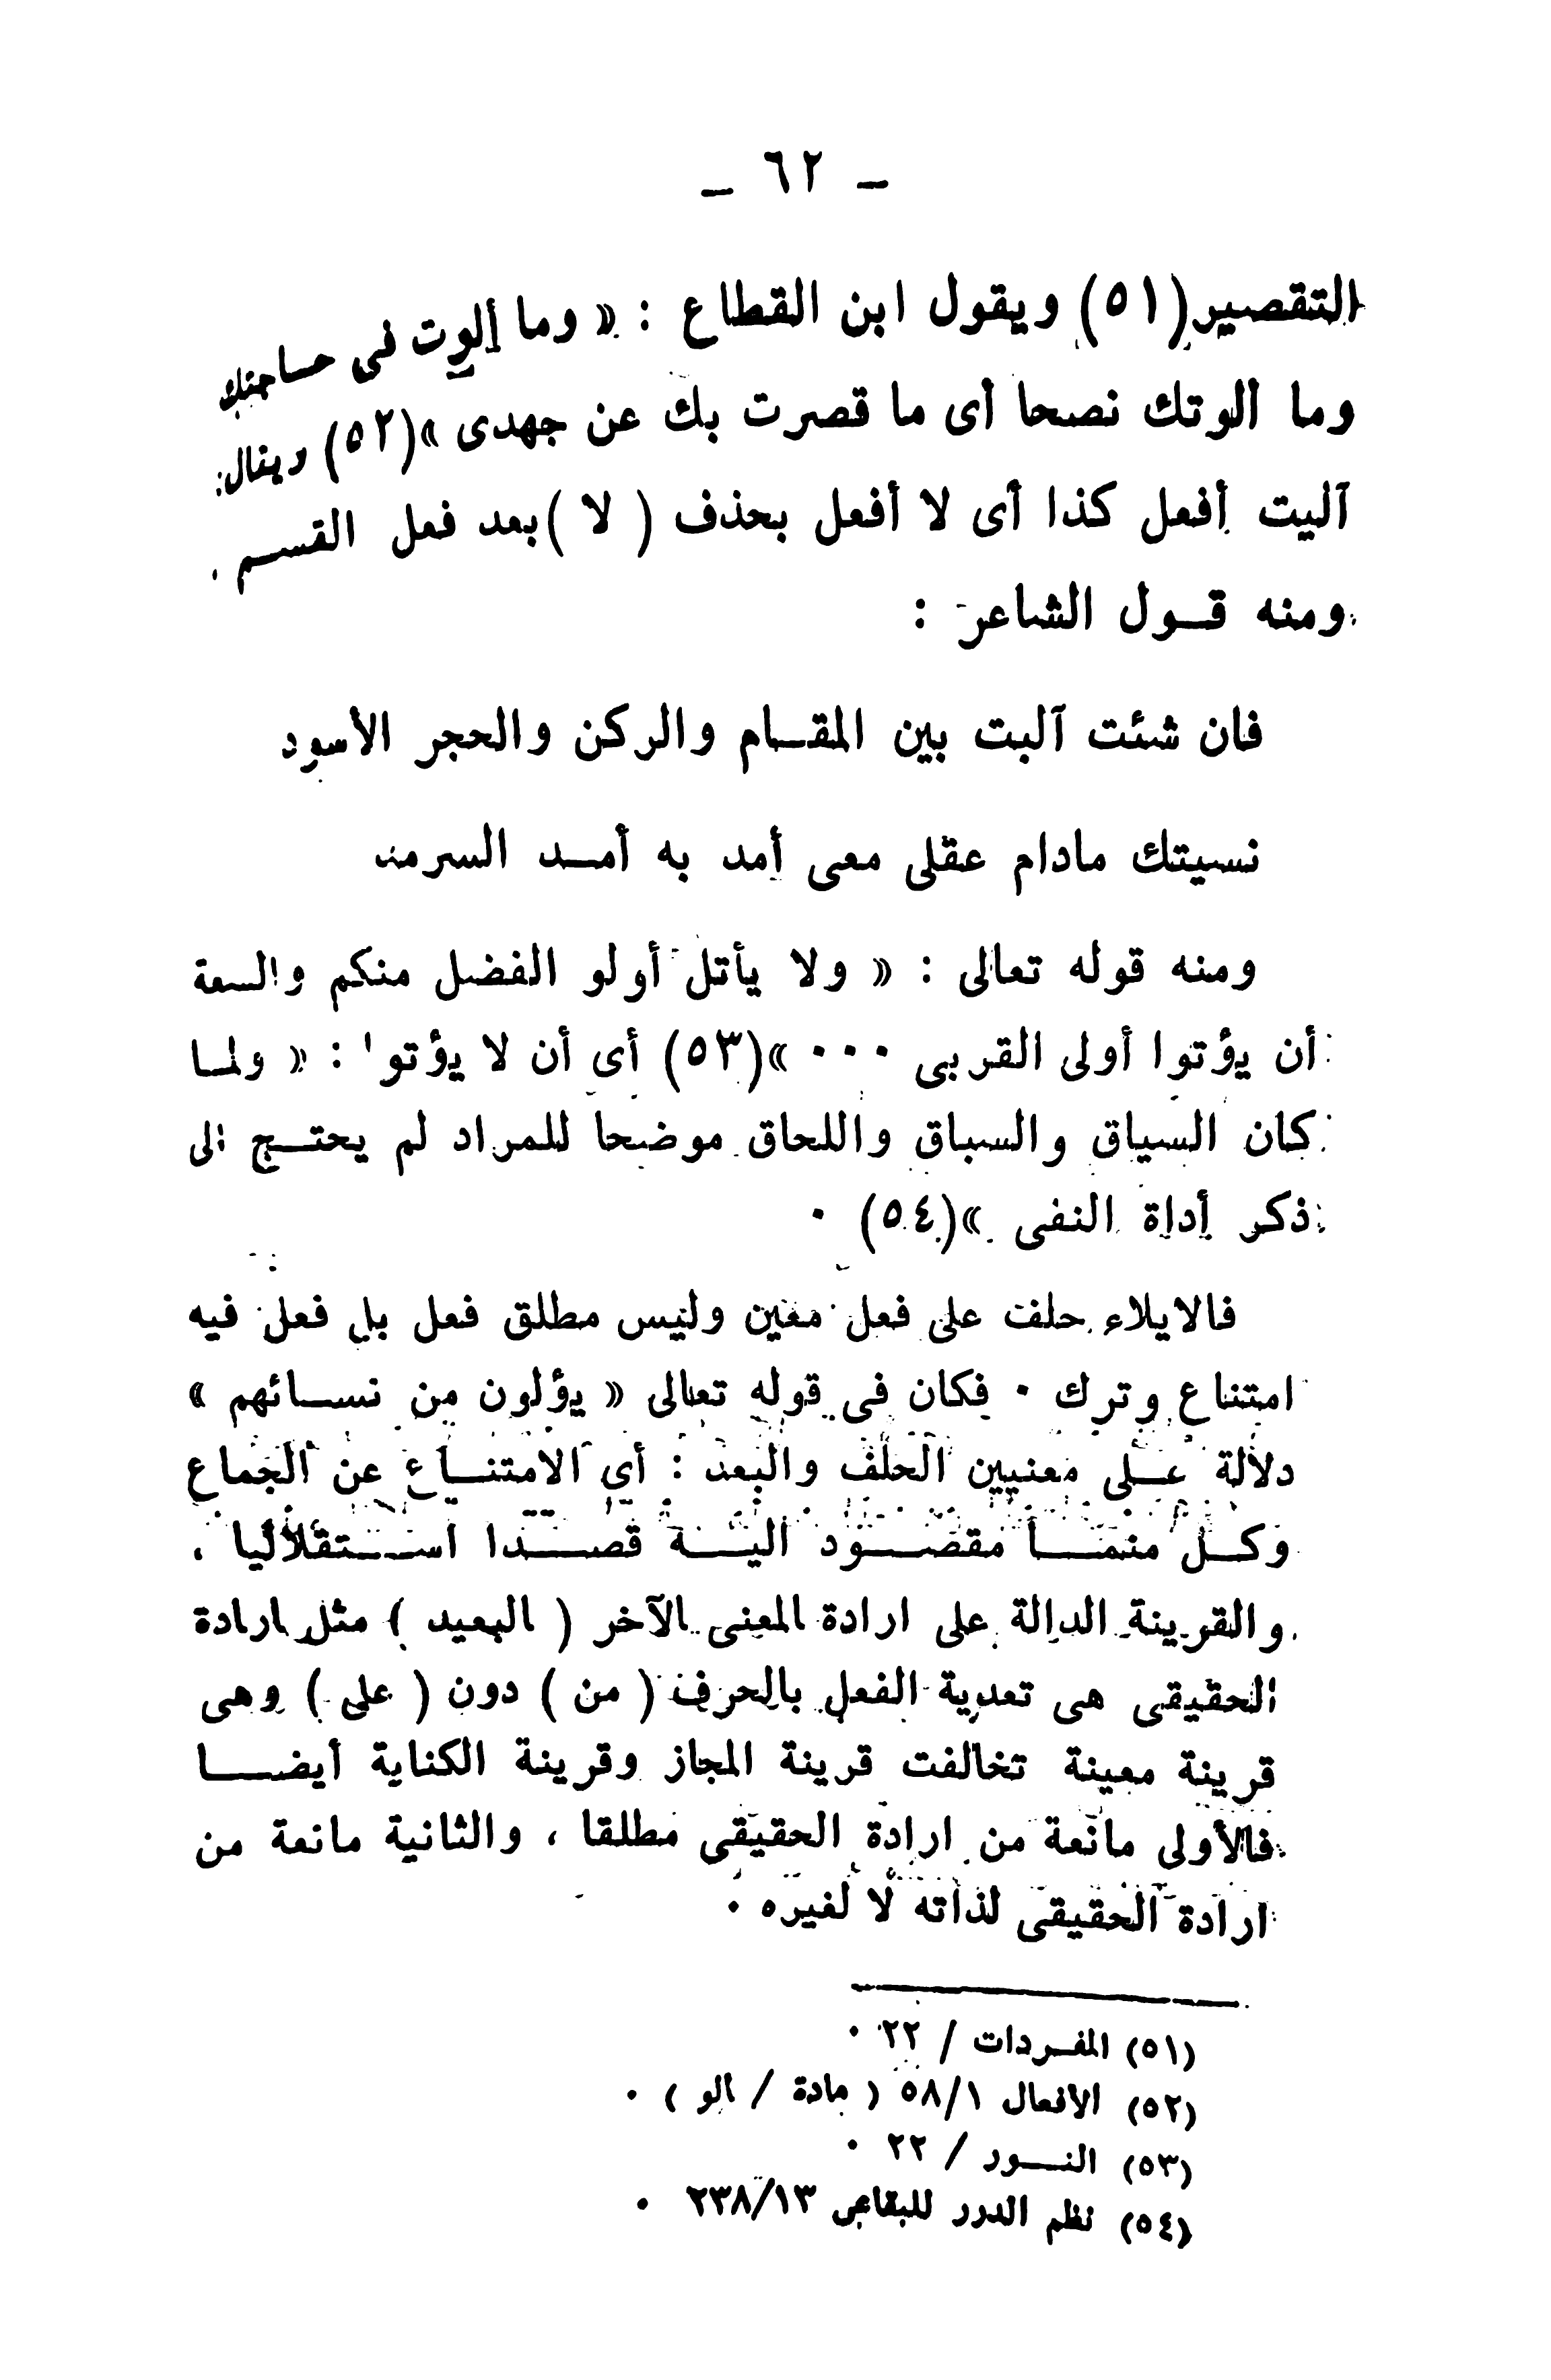 ـ ٦٢ ـ
التقصير(٥١) ويقول ابن القطاع : « وما ألوت فى حساجتك
وما ألوتك نصحا أى ما قصرت بك عن جهدى »(٥٢) ويقال:
آليت أفعل كذا أى لا أفعل بحذف ( لا )بعد فعل القســم ٠
ومنه قــول الشاعر :
فان شئت آليت بين المقــام والركن والحجر الأسود
نسيتك مادام عقلى معى أمد به أمــد السرمد
ومنه قوله تعالى : « ولا يأتل أولو الفضل منكم والسعة
أن يؤتوا أولى القربى ٠٠٠ »(٥٣) أى أن لا يؤتوا : « ولمــا
كان السياق والسباق واللحاق موضحا للمراد لم يحتــج الى
ذكر أداة النفى »(٥٤) ٠
فالايلاء حلف على فعل معين وليس مطلق فعل بل فعل فيه
امتناع وترك ٠ فكان فى قوله تعالى « يؤلون من نســائهم »
دلالة عــلى معنيين الحلف والبعد : أى الامتنــاع عن الجماع
وكــل منهمــا مقصــود اليــه قصــدا استــقلاليا ،
والقرينة الدالة على ارادة المعنى الآخر ( البعيد ) مثل ارادة
الحقيقى هى تعدية الفعل بالحرف ( من ) دون ( على ) وهى
قرينة معينة تخالفت قرينة المجاز وقرينة الكناية أيضــا
فالأولى مانعة من ارادة الحقيقى مطلقا ، والثانية مانعة من
ارادة الحقيقى لذاته لا لغيره ٠
(٥١) المفــردات / ٢٢ ٠
(٥٢) الافعال ٥٨/١ ( مادة / الو ) ٠
(٥٣) النــور / ٢٢ ٠
(٥٤) نظم الدرر للبقاعى ٢٣٨/١٣ ٠